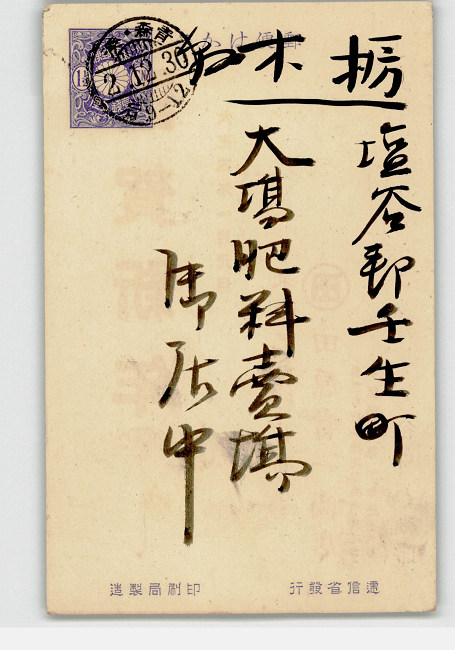 郵便はがき
青森
2.12.30
栃木
塩谷郡壬生町
大場肥料賣場
御店中
逓信省發行
印刷局製造